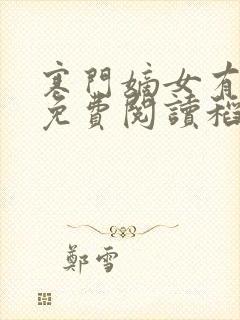 寒門嫡女有
免費閱讀稻
鄭雪